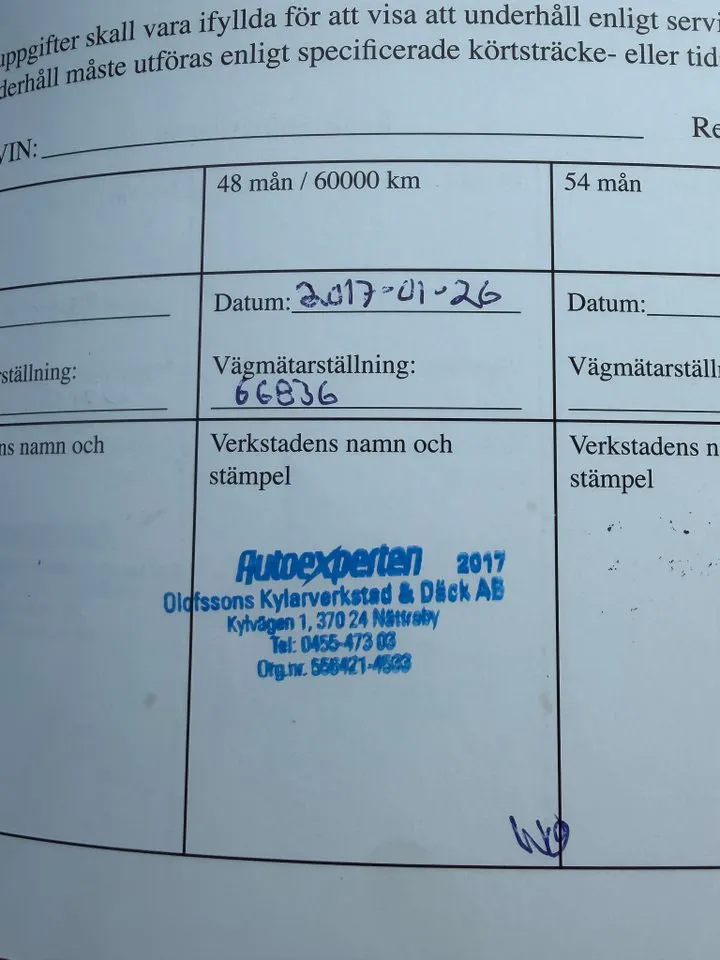 uppgifter skall vara ifyllda för att visa att underhåll enligt servi
derhåll måste utföras enligt specificerade körtsträcke- eller tid
VIN:
Re
48 mån / 60000 km
54 mån
Datum: 2017-01-26
Datum:
ställning:
Vägmätarställning:
66836
Vägmätarställn
ns namn och
Verkstadens namn och
stämpel
Verkstadens n
stämpel
Autoexperten 2017
Olofssons Kylarverkstad & Däck AB
Kylvägen 1, 370 24 Nättraby
Tel: 0455-473 03
Org.nr.